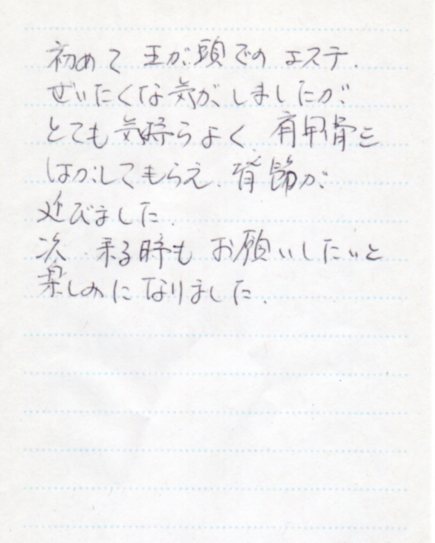 初めて 王が頭での エステ.
ぜいたくな気が、しましたが
とても気持ちよく 肩甲骨を
はがしてもらえ、背筋が
延びました.
次 来る時も お願いしたいと
楽しみに なりました.